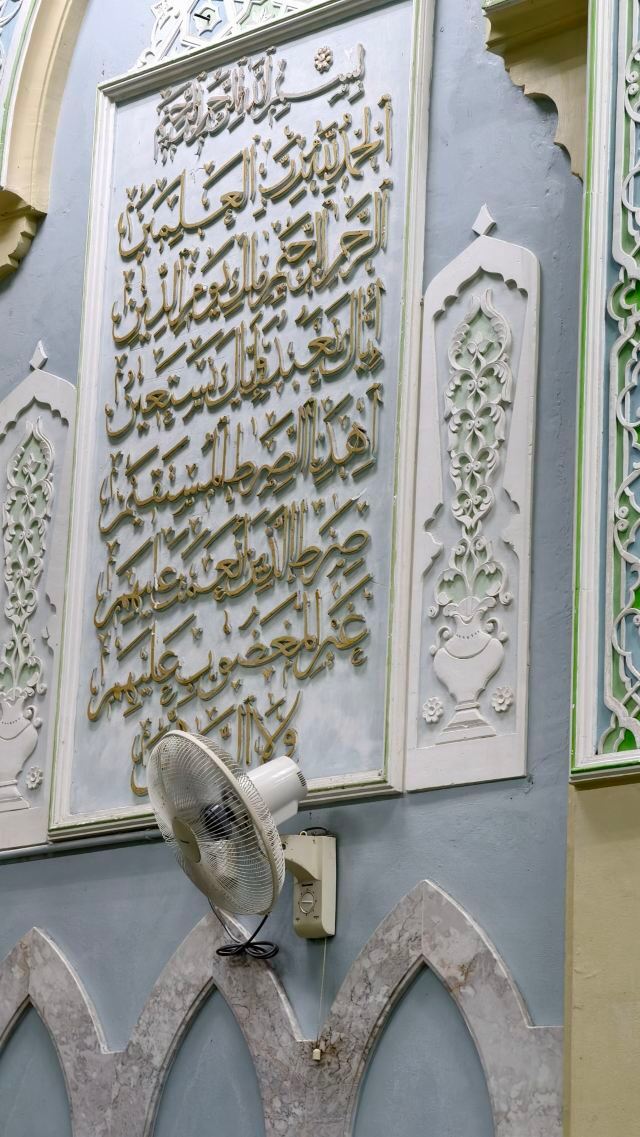 بسم الله الرحمن الرحيم
الحمد لله رب العلمين
الرحمن الرحيم ملك يوم الدين
اياك نعبد واياك نستعين
اهدنا الصرط المستقيم
صرط الذين انعمت عليهم
غير المغضوب عليهم
ولا الضالين